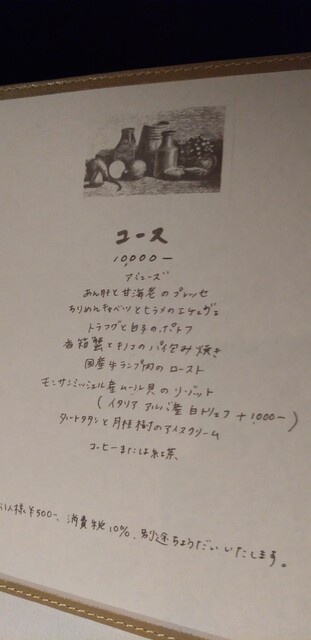 コース
10,000-
アミューズ
あん肝と甘海老のプレッセ
ちりめんキャベツとヒラメのエチュヴェ
トラフグと白子のポトフ
香箱蟹とキノコのパイ包み焼き
国産牛ランプ肉のロースト
モンサンミッシェル産ムール貝のリゾット
(イタリア アルバ産白トリュフ +1,000-)
タルトタタンと月桂樹のアイスクリーム
コーヒーまたは紅茶
人様¥500-、消費税10%、別途ちょうだいいたします。